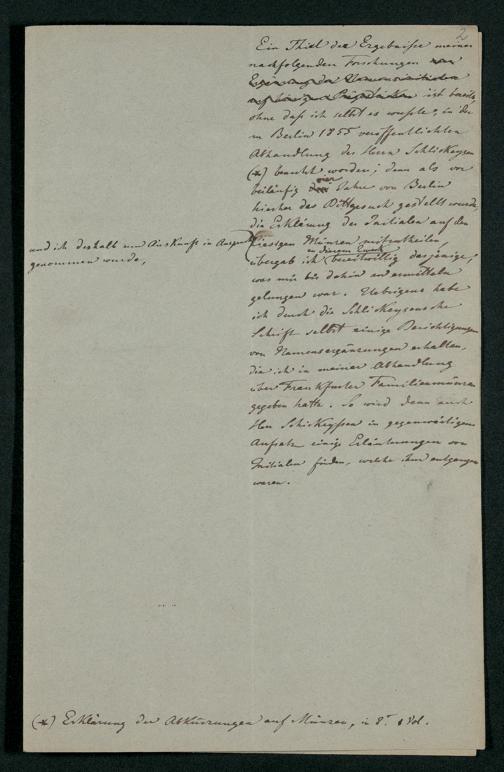 2
Ein Theil der Ergebnisse meiner
nachfolgenden Forschungen von
Ergänzung der Namensinitialen
auf hiesigen ist bereits,
ohne daß ich selbst es wußte, in der
in Berlin 1855 veröffentlichten
Abhandlung des Herrn Schlickeysen
(*) benutzt worden; denn als vor
beiläufig vier Jahren von Berlin
hierher das Bittgesuch gestellt wurde,
die Erklärung der Initialen auf den
hiesigen Münzen mitzutheilen,
und ich deshalb um Auskunft in Anspruch
genommen wurde,
übergab ich zu diesem Zweck bereitwillig dasjenige,
was mir bis dahin zu ermitteln
gelungen war. Uebrigens habe
ich durch die Schlickeysensche
Schrift selbst einige Berichtigungen
von Namensergänzungen erhalten,
die ich in meiner Abhandlung
über Frankfurter Familienmünzen
gegeben hatte. So wird denn auch
Herr Schlickeysen in gegenwärtigem
Aufsatz einige Erläuterungen von
Initialen finden, welche ihm entgangen
waren.
(*) Erklärung der Abkürzungen auf Münzen, in 8.° 1 Vol.